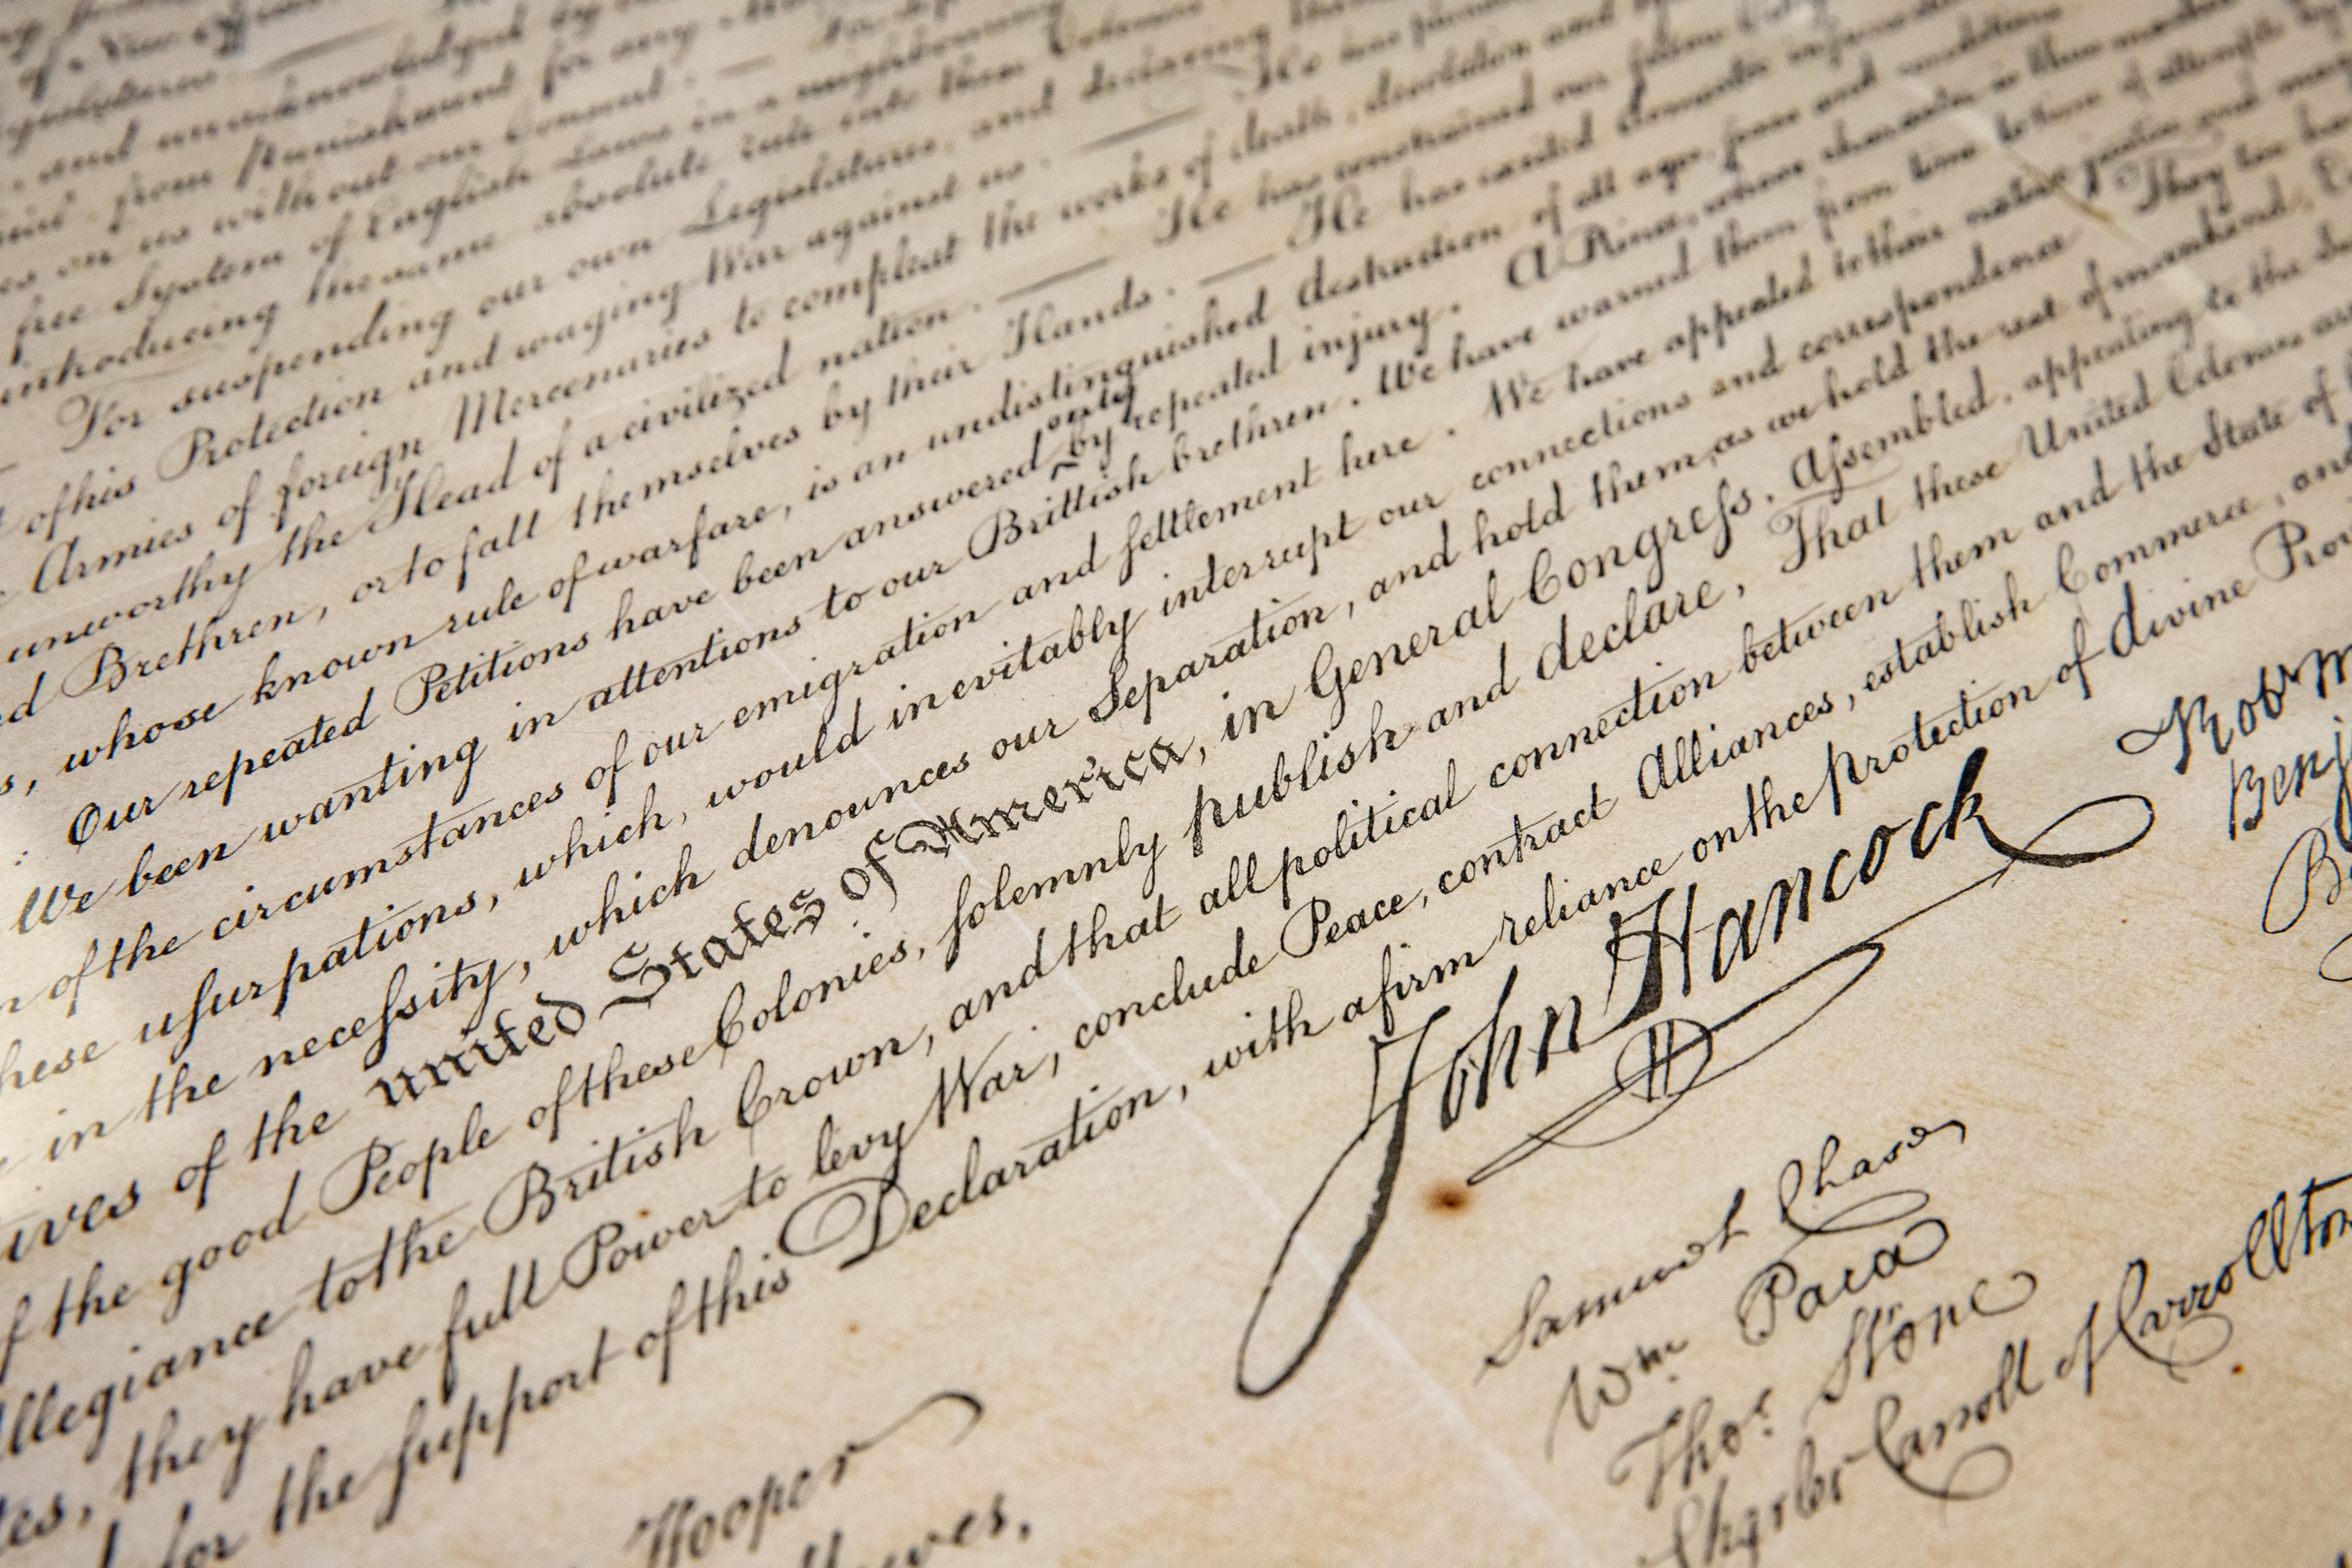 and unacknowledged by
from punishment for any
on us without our Consent : —
free System of English Laws in a neighbouring
introducing the same absolute rule into these Colonies
— For suspending our own Legislatures, and declaring
of his Protection and waging War against us. — He has
Armies of foreign Mercenaries to compleat the works of death, desolation and
unworthy the Head of a civilized nation. — He has constrained our fellow
Brethren, or to fall themselves by their Hands. — He has excited domestic
whose known rule of warfare, is an undistinguished destruction of all ages, sexes and conditions
Our repeated Petitions have been answered only by repeated injury. A Prince, whose character is thus
We been wanting in attentions to our Brittish brethren. We have warned them from time to time of attempts by
of the circumstances of our emigration and settlement here. We have appealed to their native justice and
hese usurpations, which, would inevitably interrupt our connections and correspondence They too
in the necessity, which denounces our Separation, and hold them, as we hold the rest of mankind,
ives of the united States of America, in General Congress, Assembled, appealing to the
f the good People of these Colonies, solemnly publish and declare, That these United Colonies
llegiance to the British Crown, and that all political connection between them and the State of
tes, they have full Power to levy War, conclude Peace, contract Alliances, establish Commerce, and
for the support of this Declaration, with a firm reliance on the protection of divine Prov
John Hancock
Robt M
Benj
Hooper
ewes,
Samuel Chase
Wm Paca
Thos Stone
Charles Carroll of Carrollton